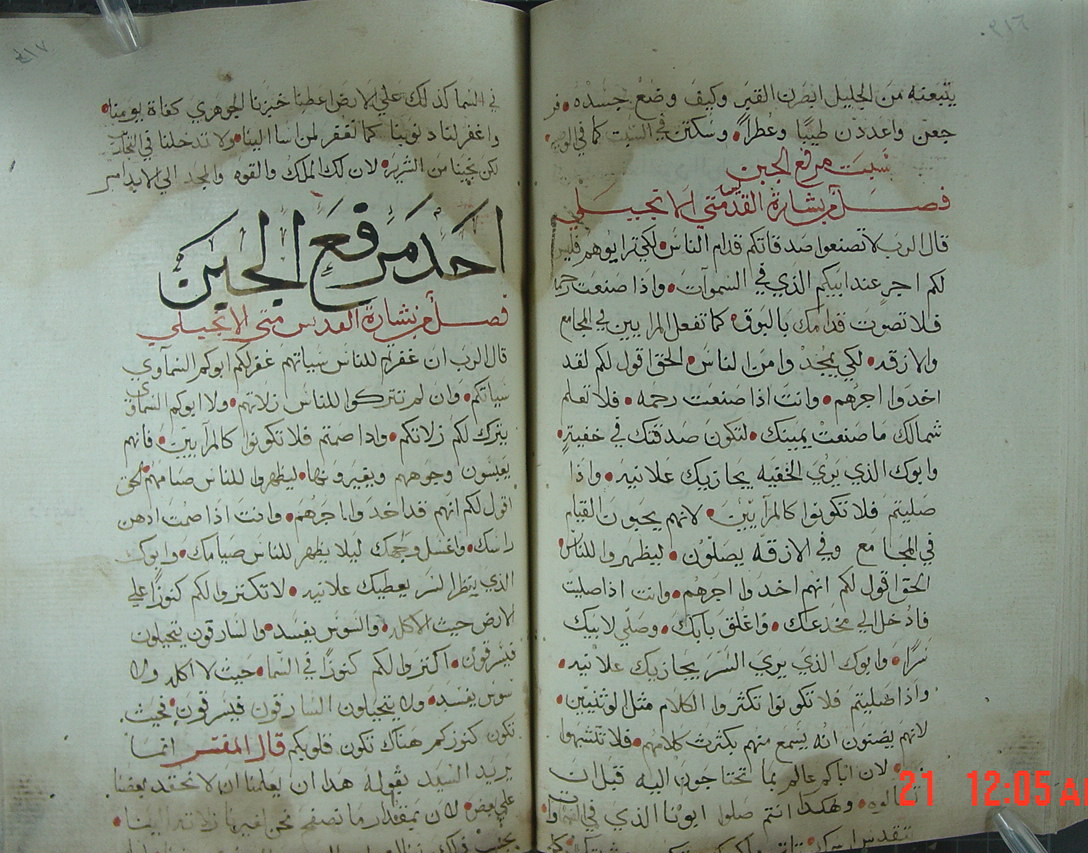 ٣١٦
يتبعنه من الجليل ابصرن القبر وكيف وضع جسده فر
جعن واعددن طيبًا وعطرًا وسكتن في السبت كما في الوصيه
سبت مرفع الجبن
فصل من بشارة القدس متي الانجيلي
قال الرب لا تصنعوا صدقاتكم قدام الناس لكي تراوهم فليس
لكم اجر عند ابيكم الذي في السموات واذا صنعت رحمه
فلا تصوت قدامك بالبوق كما تفعل المرايين في المجامع
والازقه لكي يمجدوا من الناس الحق اقول لكم لقد
اخدوا اجرهم وانت اذا صنعت رحمه فلا تعلم
شمالك ما صنعت يمينك لتكون صدقتك في خفية
وابوك الذي يري الخفيه يجازيك علانيه واذا
صليتم فلا تكونوا كالمرآيين لانهم يحبون القيام
في المجامع وفي الازقه يصلون ليظهروا للناس
الحق اقول لكم انهم اخدوا اجرهم وانت اذا صليت
فادخل الي مخدعك واغلق بابك وصلي لابيك
سرًا وابوك الذي يري السر يجازيك علانيه
واذا صليتم فلا تكونوا تكثروا الكلام مثل الوثنيين
لانهم يضنون انه يسمع منهم بكثرت كلامهم فلا تتشبهوا
لان اباكم عالم بما تحتاجون اليه قبل ان
تسالوه وهكدا انتم صلوا ابونا الذي في السموات
تقدس
٣١٧
في السما كذلك علي الارض اعطينا خبزنا الجوهري كفاة يومنا
واغفر لنا دنوبنا كما نغفر لمن اسا الينا ولا تدخلنا في التجارب
لكن نجينا من الشرير لان لك الملك والقوه والمجد الي الابد امين
احد مرفع الجبن
فصل من بشارة القدس متي الانجيلي
قال الرب ان غفرتم للناس سياتهم غفر لكم ابوكم السماوي
سياتكم وان لم تتركوا للناس زلاتهم ولا ابوكم السماوي
يترك لكم زلاتكم واذا صمتم فلا تكونوا كالمرآيين فانهم
يعبسون وجوههم ويغيرونها ليظهروا للناس صيامهم الحق
اقول لكم انهم قد اخدوا اجرهم وانت اذا صمت ادهن
راسك واغسل وجهك ليلا يظهر للناس صيامك وابوك
الذي ينظر السر يعطيك علانيه لا تكنزوا لكم كنوزًا علي
الارض حيث الاكله والسوس يفسد والسارقون يتحيلون
فيسرقون اكنزوا لكم كنوزًا في السما حيث لا اكله ولا
سوس يفسد ولا يتحيلون السارقون فيسرقون فحيث
تكون كنوزكم هناك تكون قلوبكم قال المفسر انما
يريد السيد بقوله هدا ان يعلمنا ان لا نحقد بعضنا
علي بعض لان بمقدار ما نصفح نحن لغيرنا زلاته الينا
21 12:05 A